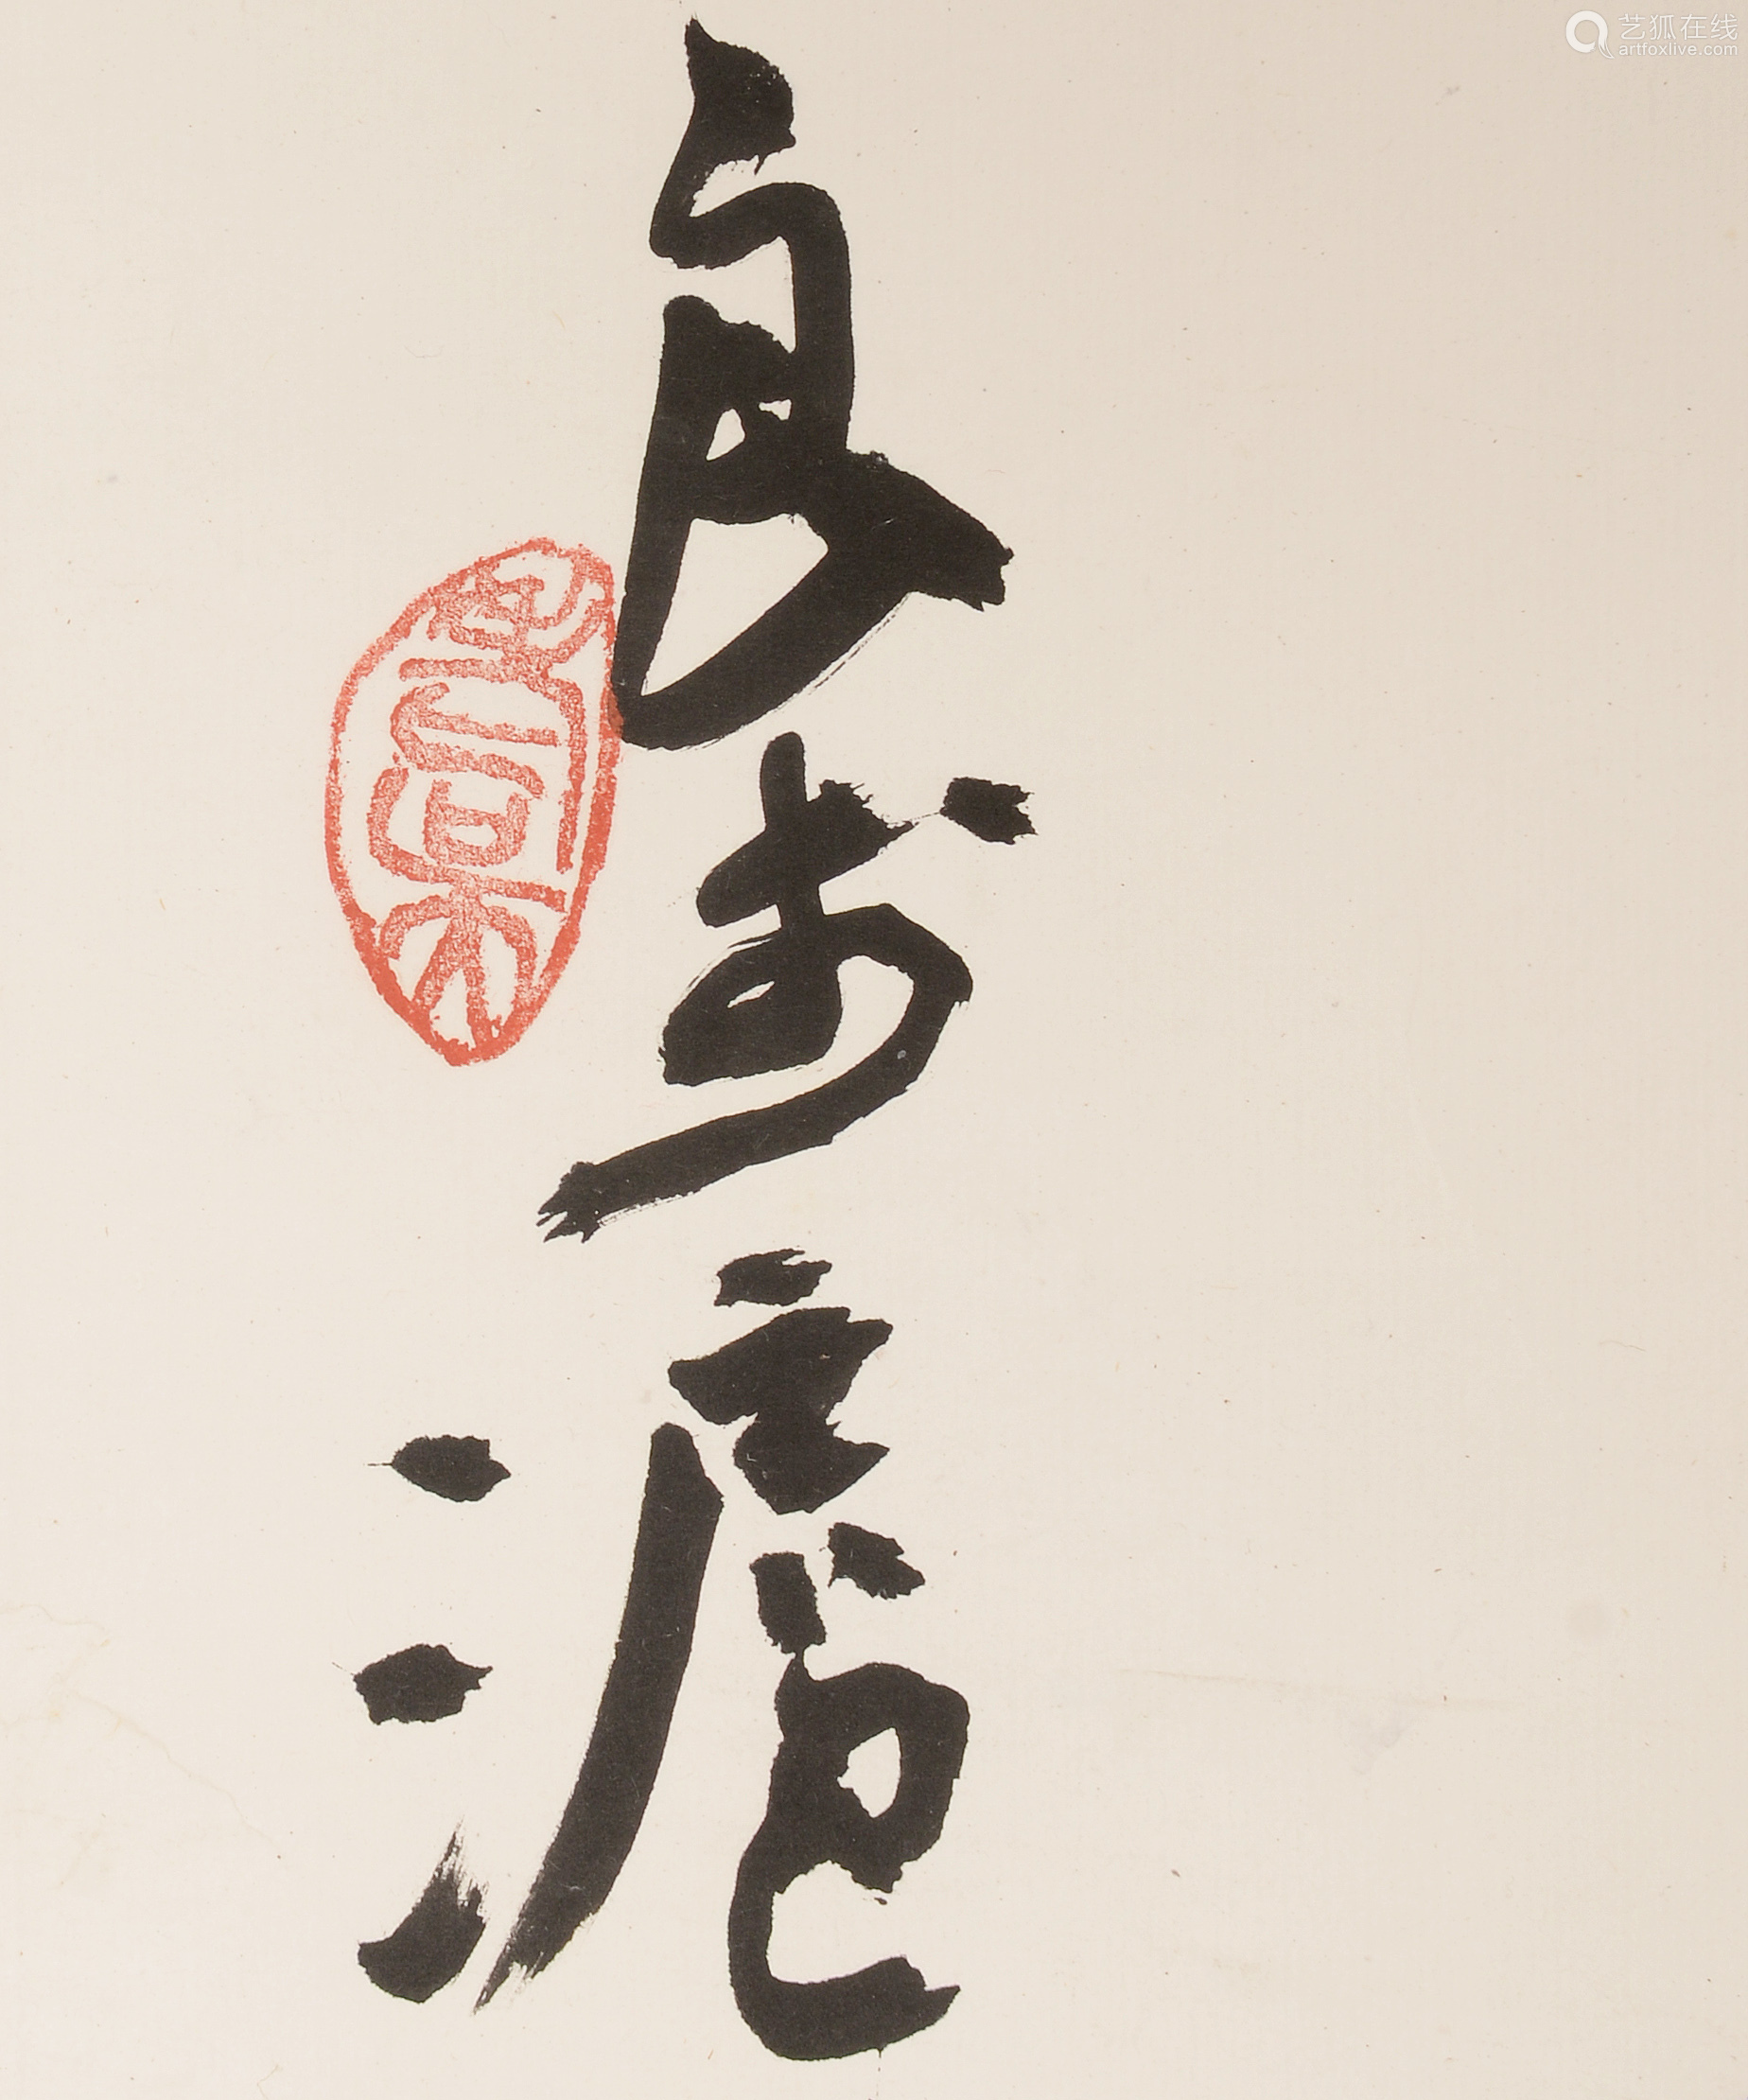 艺狐在线
artfoxlive.com
良书滬